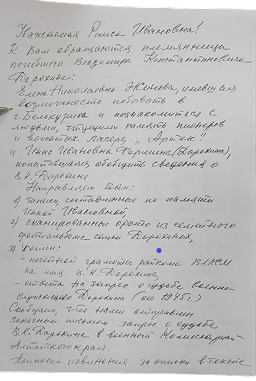 Уважаемая Раиса Ивановна!
К Вам обращаются племянница
погибшего Владимира Константиновича
Дорохина:
Елена Николаевна имевшая
возможность побывать в
г. Белокуриха и познакомиться с
людьми, чтущими память пионеров
и лагеря "Артек"
и Инна Ивановна (Дорохина),
попытавшаяся обобщить сведения о
В.К. Дорохине.
Направляем Вам:
1) запись составленные по памяти
Инной Ивановной,
2) сканированные фото из семейного
фотоальбома семьи Дорохиных,
3) копии:
- почётной грамоты райкома ВЛКСМ
на имя В.К. Дорохина,
- ответа на запрос о судьбе военно-
служащего Дорохина (от 1945г.)
Сообщаем, что нами отправлен
письмом запрос о судьбе
В.К. Дорохина в Военный Комиссариат
Алтайского края.
Приносим извинения за описки в тексте